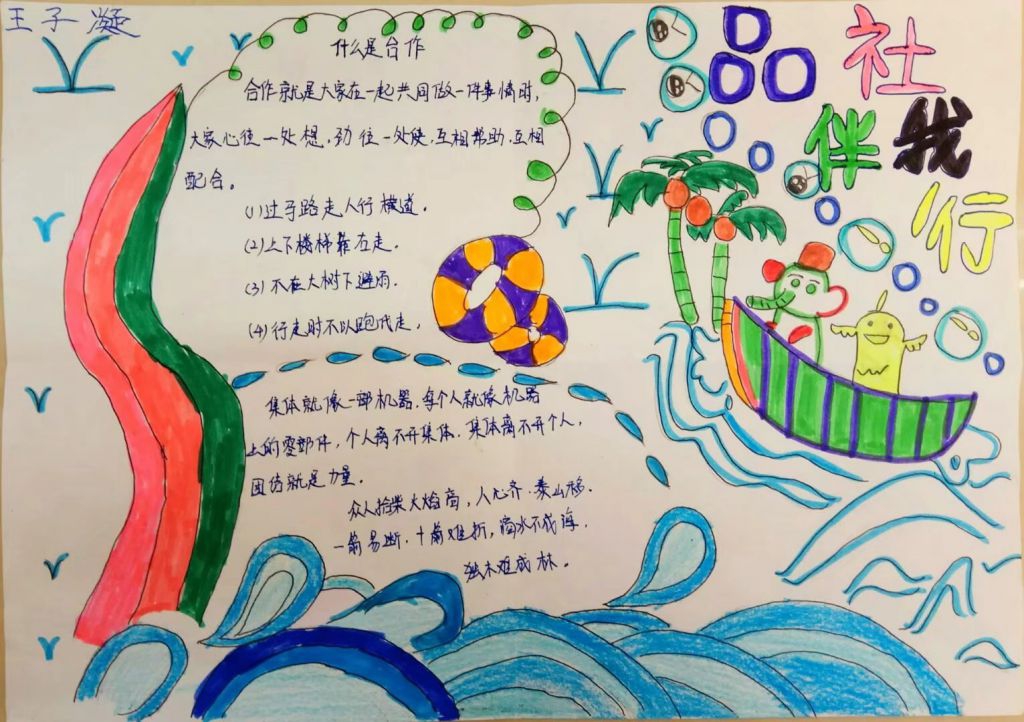 王子凝
品社
伴我
行
什么是合作
合作就是大家在一起共同做一件事情时,
大家心往一处想,劲往一处使,互相帮助,互相
配合。
(1)过马路走人行横道。
(2)上下楼梯靠右走。
(3)不在大树下避雨。
(4)行走时不以跑代走。
集体就像一部机器,每个人就像机器
上的零部件,个人离不开集体.集体离不开个人,
团结就是力量.
众人拾柴火焰高,人心齐.泰山移.
一箭易断.十箭难折,滴水不成海.
独木难成林。